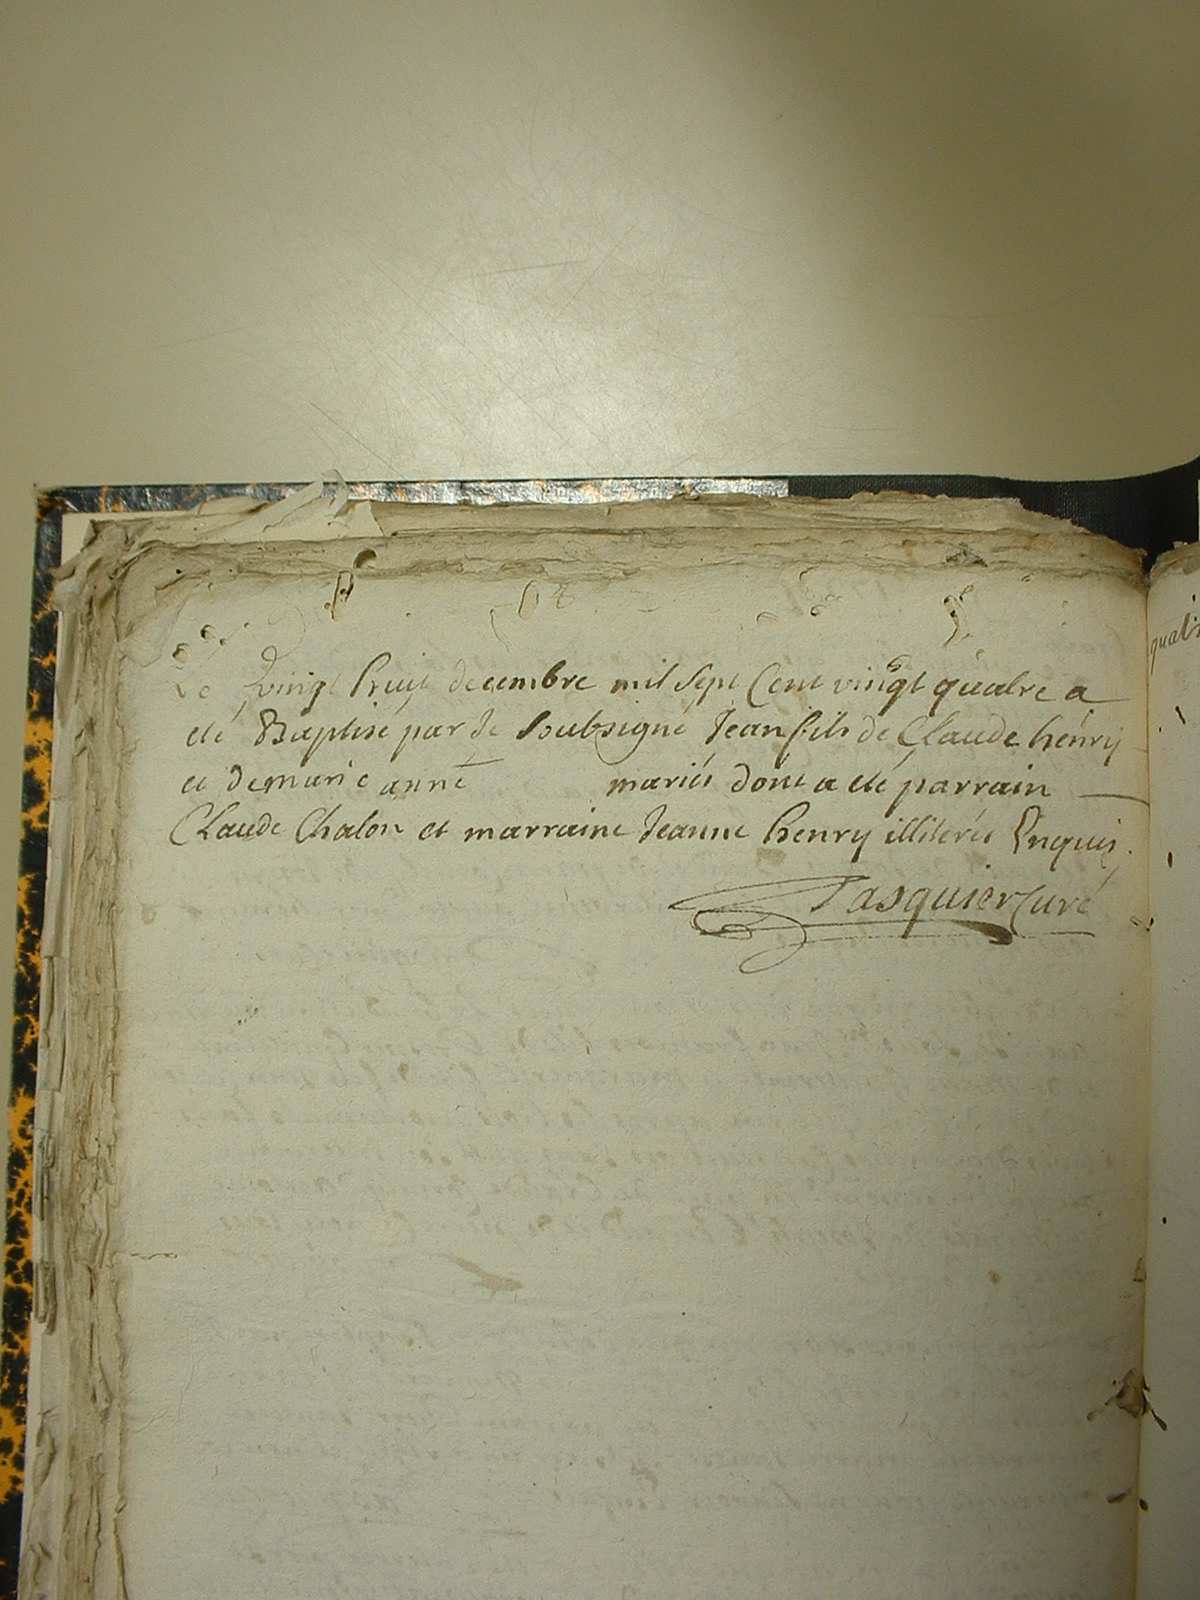 Le vingt huit decembre mil sept Cent vingt quatre a
eté Baptisé par Je Soubsigné Jean fils de Claude henry
et de marie anne mariés dont a eté parrain
Claude Chalon et marraine Jeanne henry illiterés Enquis.
Pasquier Curé